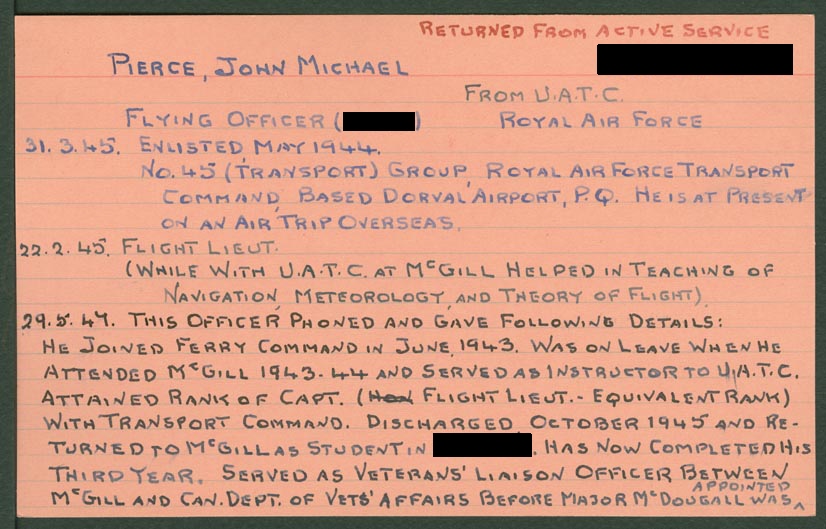 RETURNED FROM ACTIVE SERVICE
PIERCE, JOHN MICHAEL
FROM U.A.T.C.
FLYING OFFICER ( ) ROYAL AIR FORCE
31.3.45. ENLISTED MAY 1944.
NO. 45 (TRANSPORT) GROUP, ROYAL AIR FORCE TRANSPORT
COMMAND, BASED DORVAL AIRPORT, P.Q. HE IS AT PRESENT
ON AN AIR TRIP OVERSEAS.
22.2.45. FLIGHT LIEUT.
(WHILE WITH U.A.T.C. AT MCGILL HELPED IN TEACHING OF
NAVIGATION, METEOROLOGY, AND THEORY OF FLIGHT).
29.5.47. THIS OFFICER PHONED AND GAVE FOLLOWING DETAILS:
HE JOINED FERRY COMMAND IN JUNE, 1943. WAS ON LEAVE WHEN HE
ATTENDED MCGILL 1943-44 AND SERVED AS INSTRUCTOR TO U.A.T.C.
ATTAINED RANK OF CAPT. ( FLIGHT LIEUT.- EQUIVALENT RANK)
WITH TRANSPORT COMMAND. DISCHARGED, OCTOBER 1945 AND RE-
TURNED TO MCGILL AS STUDENT IN . HAS NOW COMPLETED HIS
THIRD YEAR. SERVED AS VETERANS' LIAISON OFFICER BETWEEN
MCGILL AND CAN. DEPT. OF VETS' AFFAIRS BEFORE MAJOR MCDOUGALL WAS APPOINTED